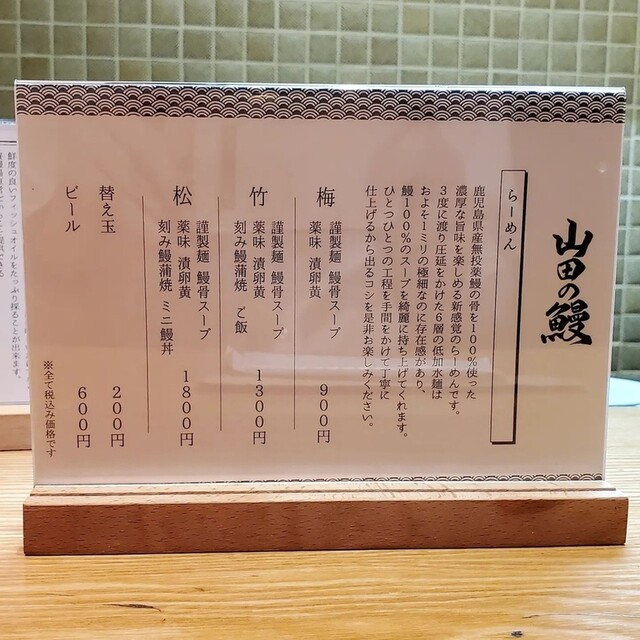 山田の鰻
らーめん
鹿児島県産無投薬鰻の骨を100%使った
濃厚な旨味を楽しめる新感覚のらーめんです。
3度に渡り圧延をかけた6層の低加水麺は
およそ1ミリの極細なのに存在感があり、
鰻100%のスープを綺麗に持ち上げてくれます。
ひとつひとつの工程を手間をかけて丁寧に
仕上げるから出るコシを是非お楽しみください。
梅
謹製麺 鰻骨スープ
薬味 漬卵黄
900円
竹
謹製麺 鰻骨スープ
薬味 漬卵黄
刻み鰻蒲焼 ご飯
1300円
松
謹製麺 鰻骨スープ
薬味 漬卵黄
刻み鰻蒲焼 ミニ鰻丼
1800円
替え玉
200円
ビール
600円
※全て税込み価格です
鮮度の良いフィッシュオイルをたっぷり採ることが出来ます。